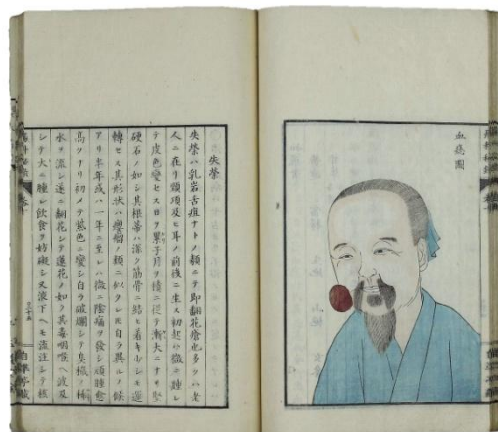 血痣圖
失榮
失榮ハ乳岩舌疽ナトノ類ニテ即翻花瘡也多クハ老
人ニ在リ頸項及ヒ耳ノ前後ニ生ス初起ハ微ニ腫レ
テ皮色變セス日ヲ累子月ヲ積ニ從テ漸大ニナリ堅
硬石ノ如シ其根蒂ハ深ク筋骨ニ結ヒ着キ少シモ運
轉セス其形狀ハ癭瘤ノ類ニ似タレ𪜈自ラ異ルノ候
アリ半年或ハ一年ニ至レハ微ニ陰痛ヲ發シ頑腫愈
高クナリ初メテ紫色ニ變シ自ラ破爛シテ臭穢ノ稀
水ヲ流シ遂ニ翻花シテ蓮花ノ如ク其毒咽喉ヘ波及
シテ大ニ腫レ飲食ヲ妨礙シ又腋下ヘモ流注シテ核